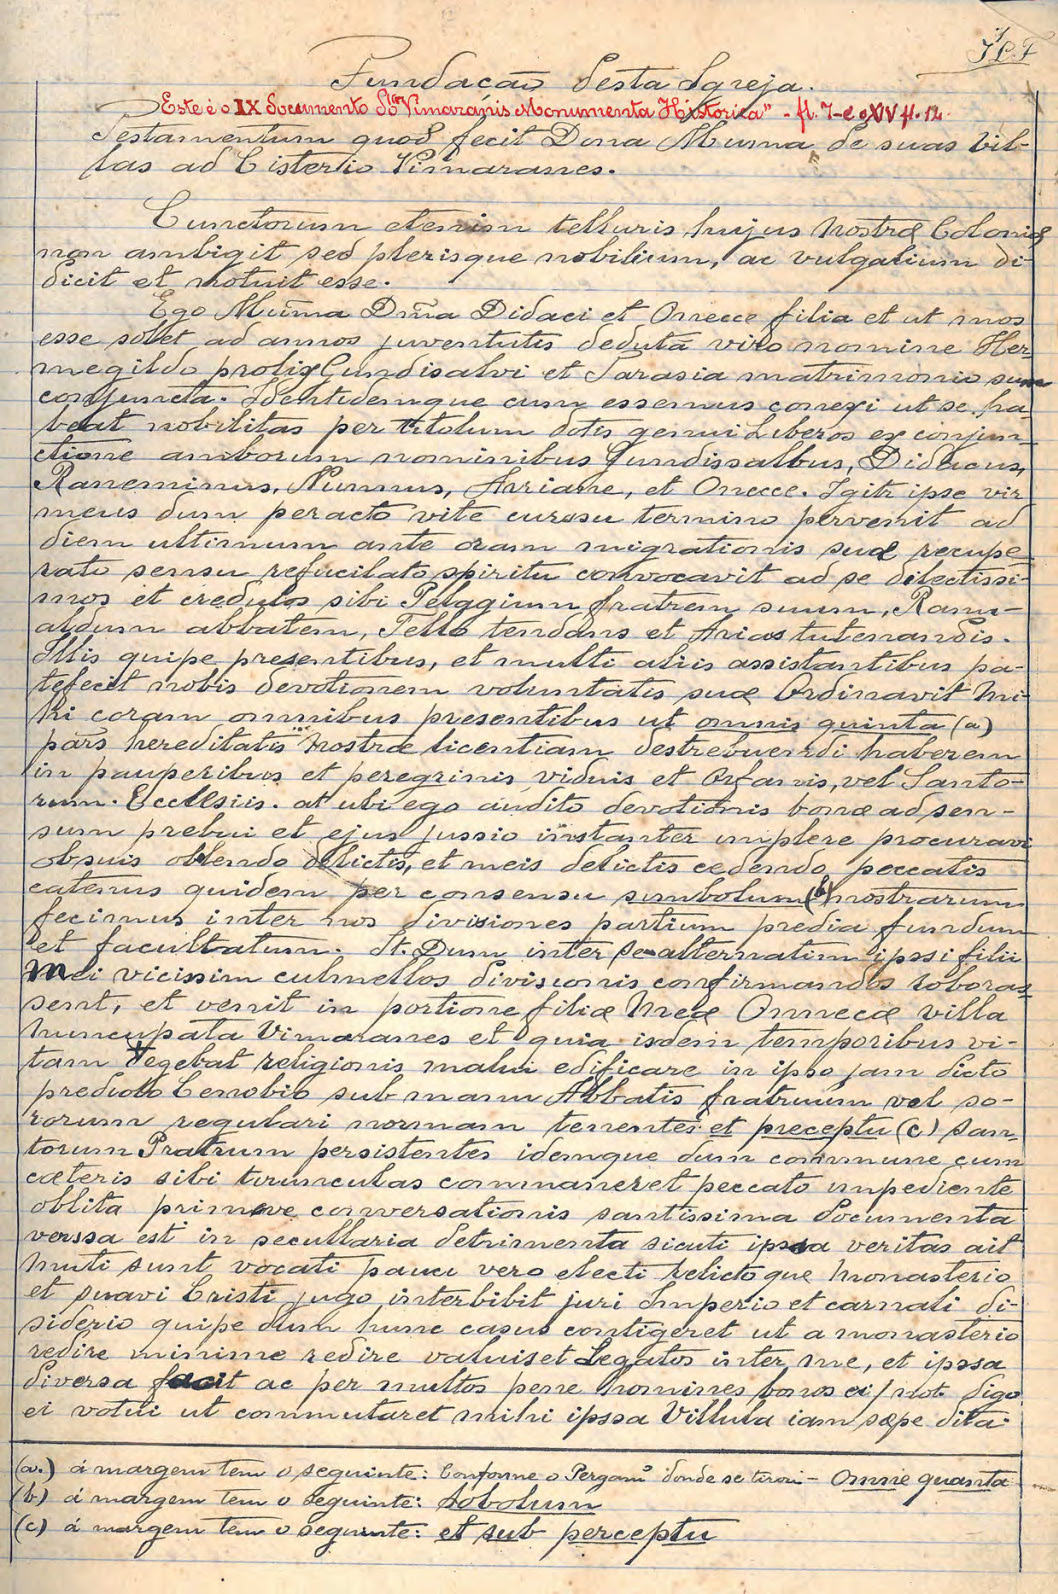 Fundação desta Igreja.
Este é o IX Documento do "Vimaranis Monumenta Historica" - fl. 7- e o XIV fl. 12.
Testamentum quod fecit Dona Muma de suas vil-
las ad Cistertio Vimaranes.
Cunctorum etenim telluris hujus Nostræ Coloniæ
non ambigit sed plerisque nobilium, ac vulgalium di-
dicit et notuit esse.
Ego Muma Dma Didaci et Onecce filia et ut mos
esse solet ad annos juventutis deduta viro nomine Her
megildo prolix Gundisalvi et Tarasia matrimonio sum
conjuncta. Identidemque cum essemus conexi ut se ha
beat nobilitas per titolum dotis genui Liberos ex conjun-
ctione amborum nominibus Gundissalbus, Didacus,
Ranemirus, Nunnus, Arriane, et Onecce. Igitr ipse vir
meus dum peracto vite curssu termino pervenit ad
diem ultimum ante oram migrationis suæ recupe
rato sensu refucilato spiritu convocavit ad se dilectissi-
mos et credulos sibi Pelagium fratrem suum, Ranu-
aldum abbatem, Tello tendans et Arias tutenandis.
Illis quipe presentibus, et multi aliis assistantibus pa-
tefecit nobis devotionem voluntatis suæ Ordinavit mi-
hi coram omnibus presentibus ut omnis quinta (a)
pars hereditatis Nostræ licentiam destrebuendi haberem
in pauperibus et peregrinis, viduis et Orfanis, vel Santo-
rum. Ecclesiis. at ubi ego audito devotionis bonæ ad sen-
sum prebui et ejus jussio instanter implere procuravi
ob suis oblendo delictis, et meis delictis cedendo peccatis
catenus quidem per consensu simbolum (b) nostrarum
fecimus inter nos divisiones partium predia fundum
et facultatum. St. Dum inter se alternatim ipssi filii
Mei vicissim culmellos divisionis confirmandos roboras
sent, et venit in portione filiæ Meæ Onnecæ villa
Nuncupata Vimaranes et quia isdem temporibus vi-
tam degebat religionis malui edificare in ipso jam dicto
predicto Cenobio sub manu Abbatis fratruum vel so-
rorum regulari normam tenentes et preceptu (c) San-
torum Pratrum persistentes idemque dum commune cum
cæteris sibi turunculas commaneret peccato impediente
oblita primeve conversationis santissima documenta
verssa est in secullaria detrimenta sicuti ipssa veritas ait
Muti sunt vocati pauci vero electi relicto que Monasterio
et suavi Cristi jugo interbibit juri Imperio et carnali di-
siderio quipe dum hunc casus contigeret ut a monasterio
redire minime redire valuiset Legatos inter me, et ipssa
diversa facit ac per multos pene homines bonos ei / not. digo
ei votui ut commutaret mihi ipssa Villula iam sæpe dita.
(a.) á margem tem o seguinte: Conforme o Pergamº donde se tirou - Omnie quanta
(b) á margem tem o seguinte: sobolum
(c) á margem tem o seguinte: et sub perceptu